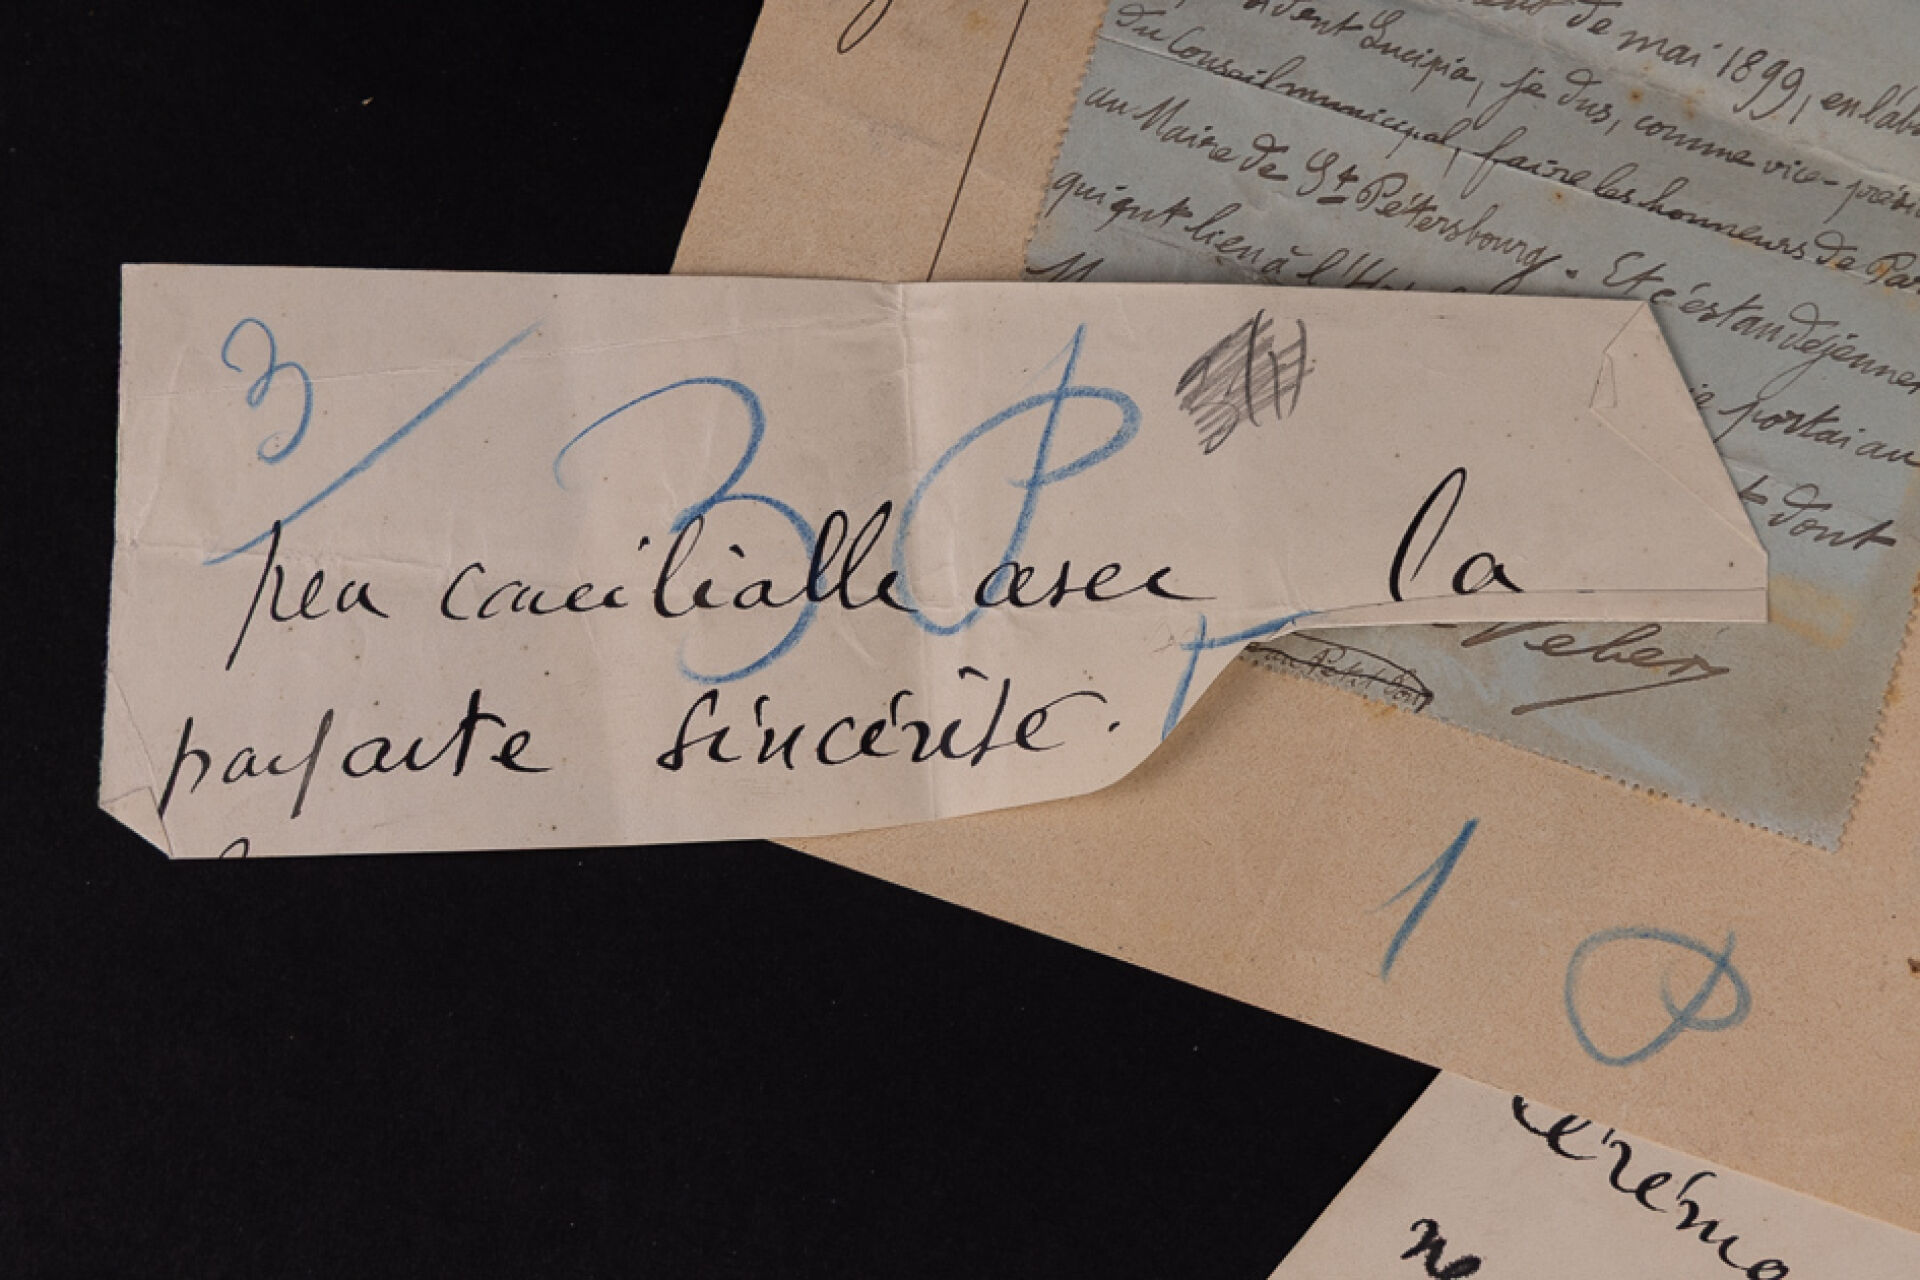 de mai 1899, en l'abs
Lucipia, je dus, comme vice-prési
du Conseil municipal, faire les honneurs de Par
au Maire de St Pétersbourg. Et c'est au déjeuner
qui eut lieu à l'H
je portai au
dont
Veber
3
3
peu conciliable avec la
parfaite sincérité.
1
Cérémo
ne